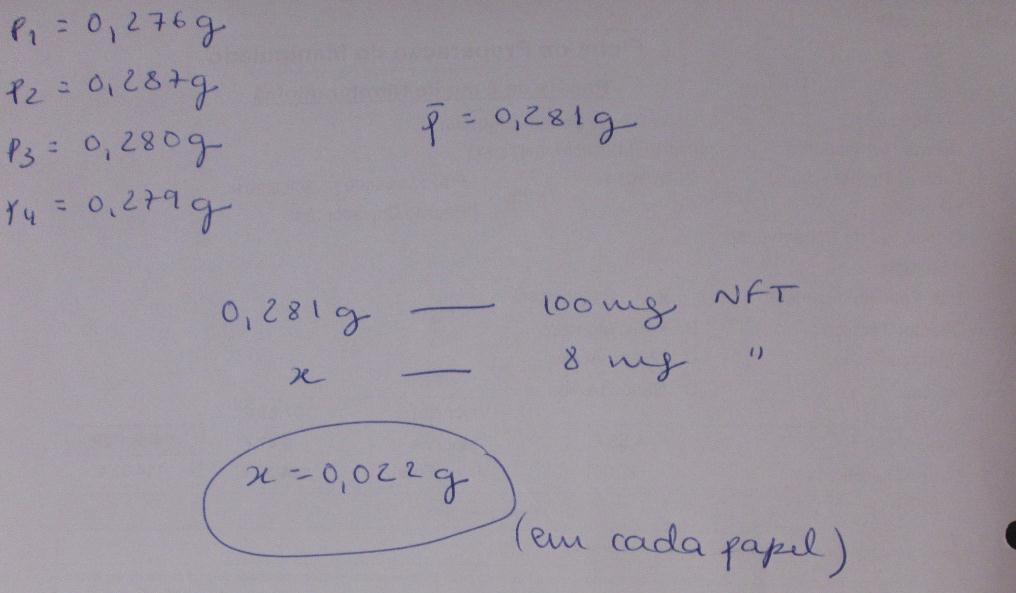 P1 = 0,276g
P2 = 0,287g
P3 = 0,280g
P4 = 0,279g
p̄ = 0,281g
0,281g — 100mg NFT
x — 8 mg "
x = 0,022g
(em cada papel)